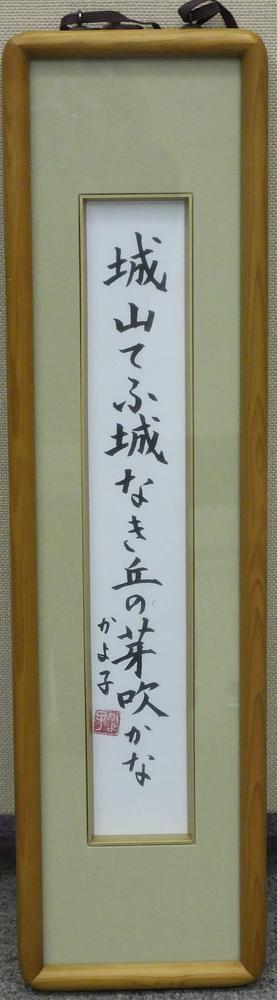 城山てふ城なき丘の芽吹かな
かよ子